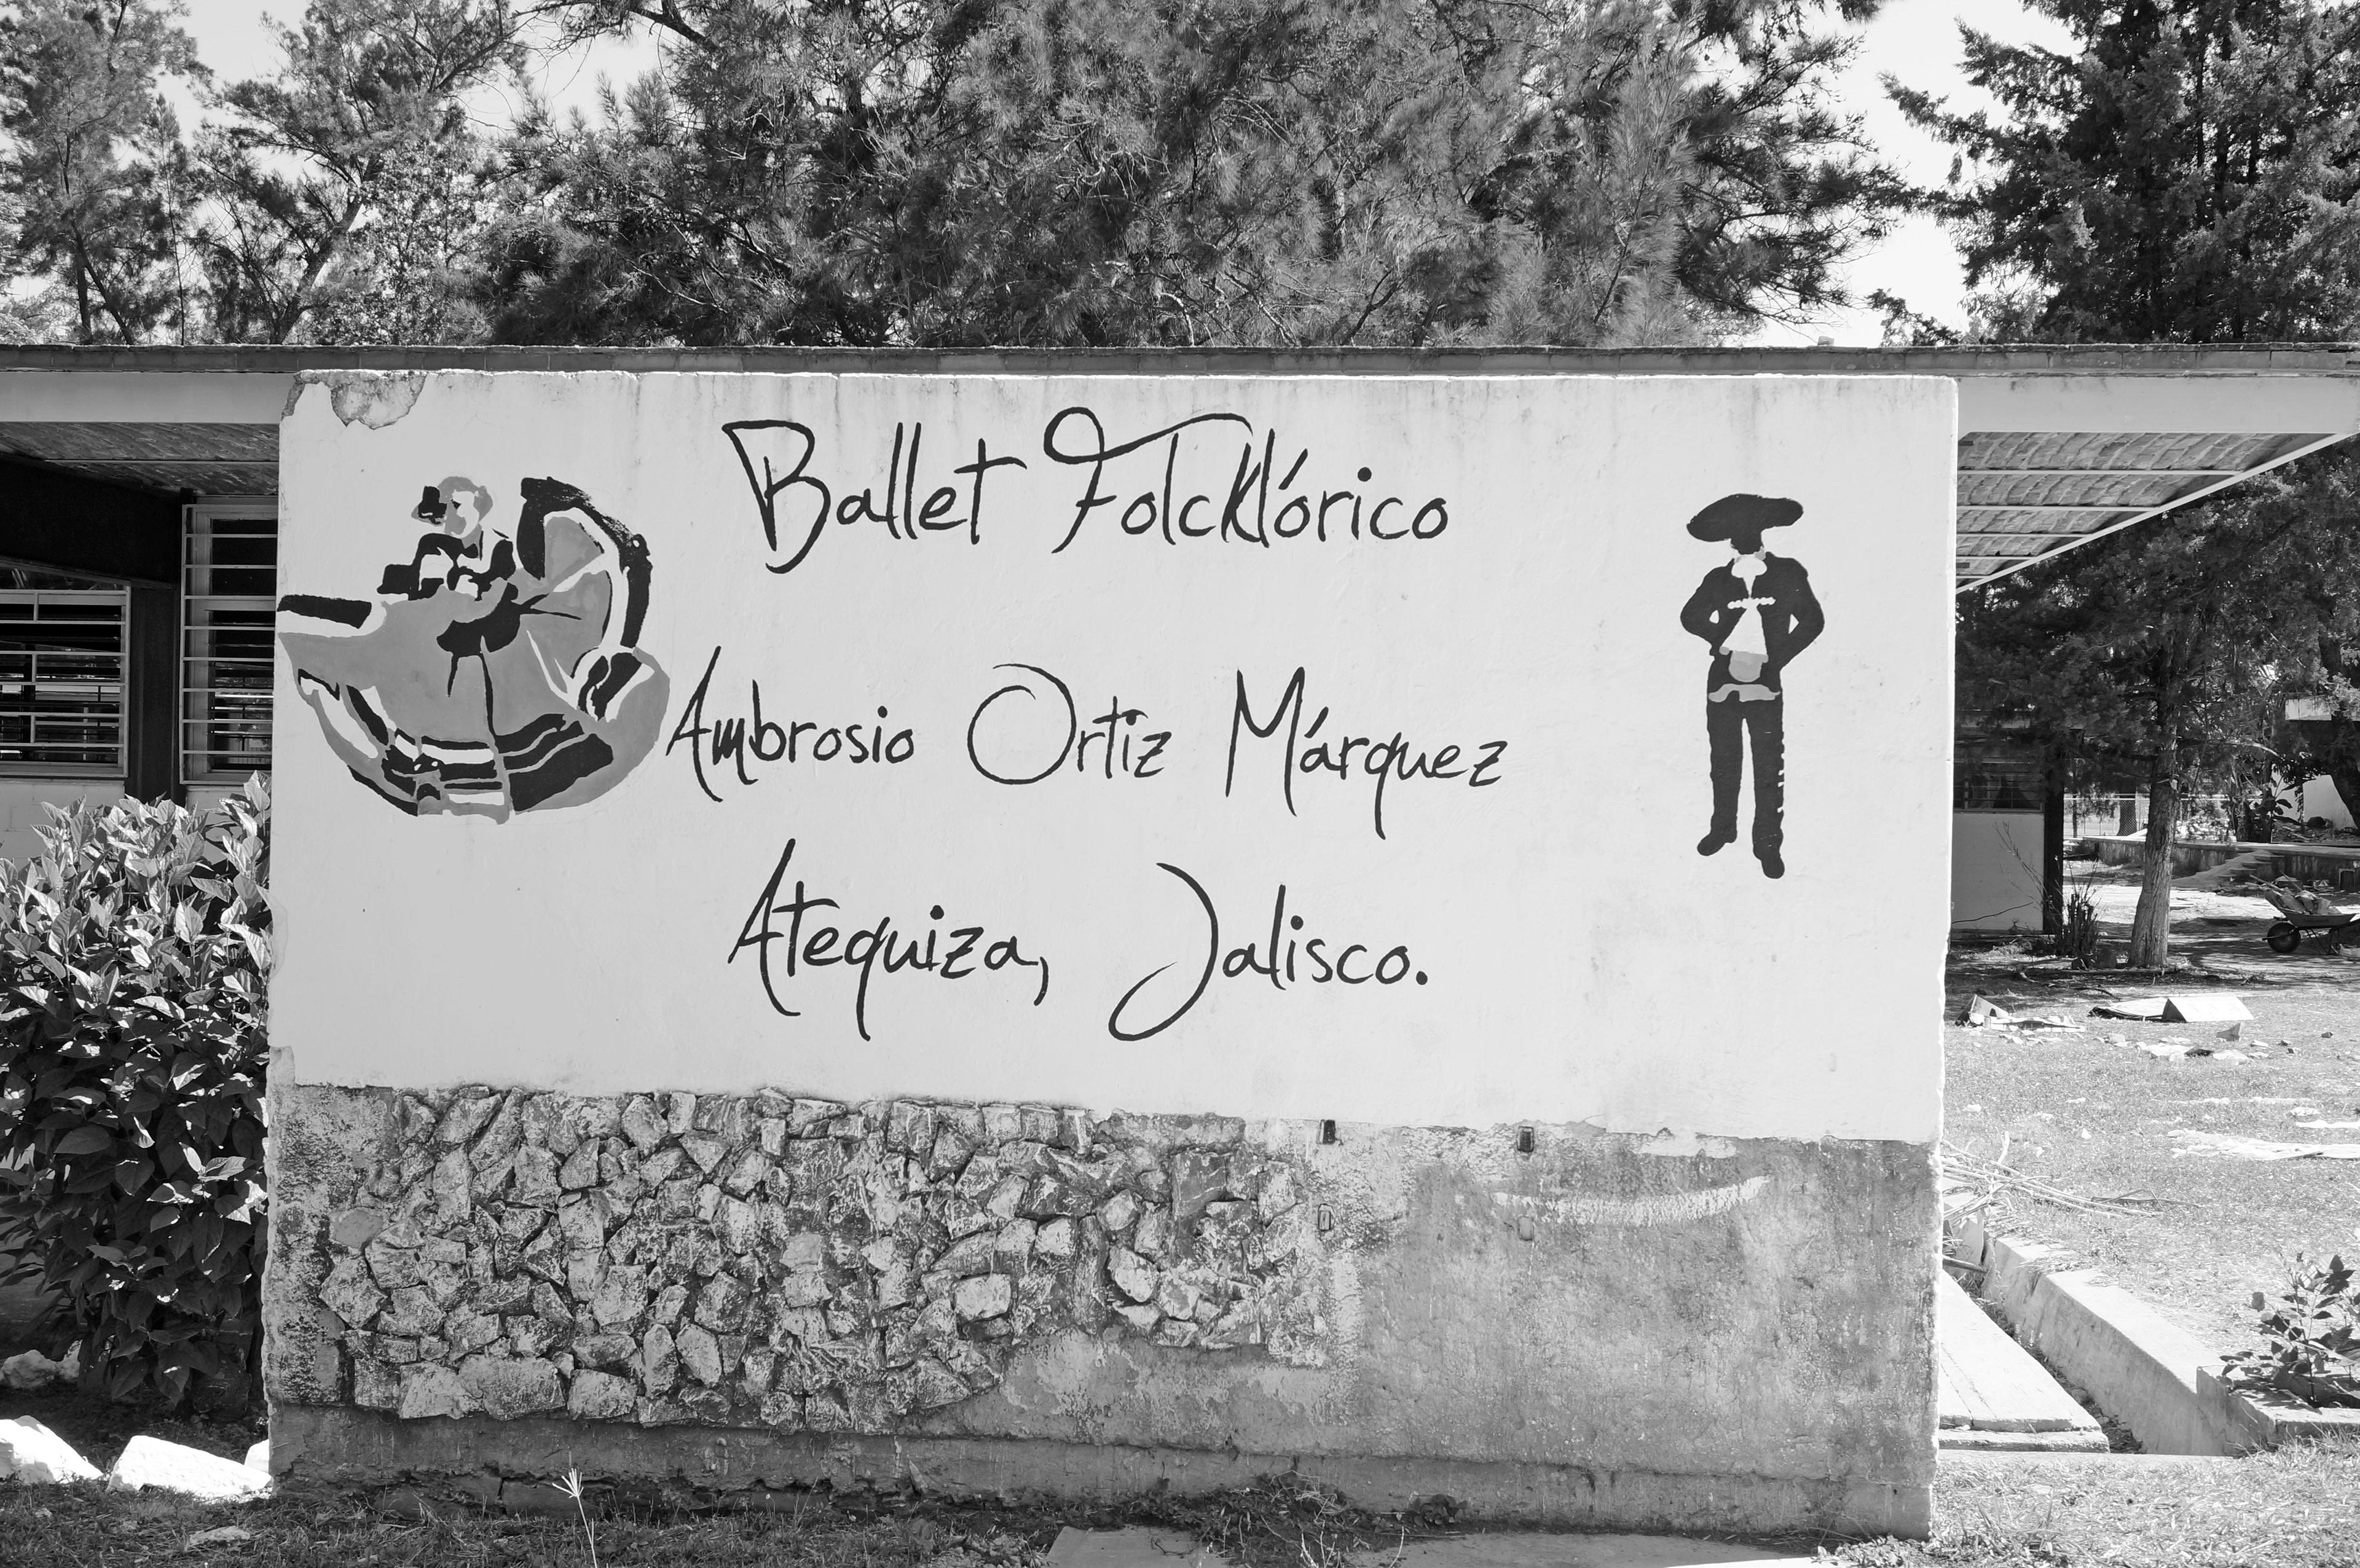 Ballet Folcklórico
Ambrosio Ortiz Márquez
Atequiza, Jalisco.